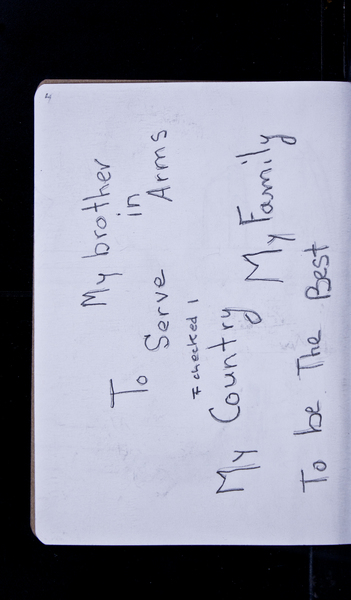 4
My brother
To in
Serve Arms
checked 1
My Country My Family
To be The Best